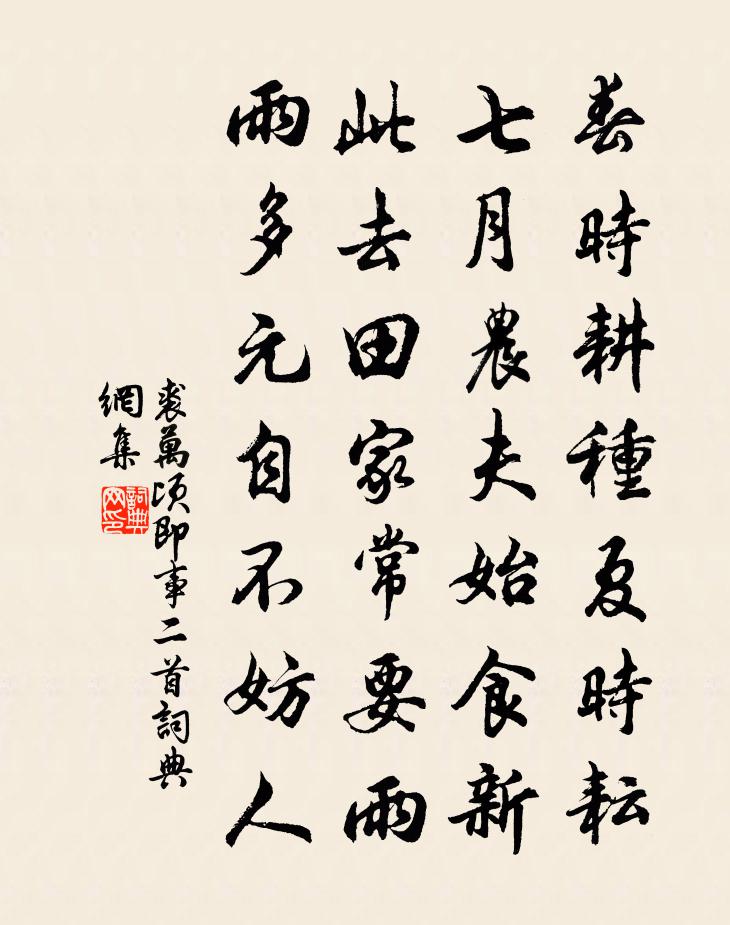 春時耕種夏時耘
七月農夫始食新
此去田家常要雨
雨多元自不妨人
裘萬頃即事二首詞典
網集
詞典網印